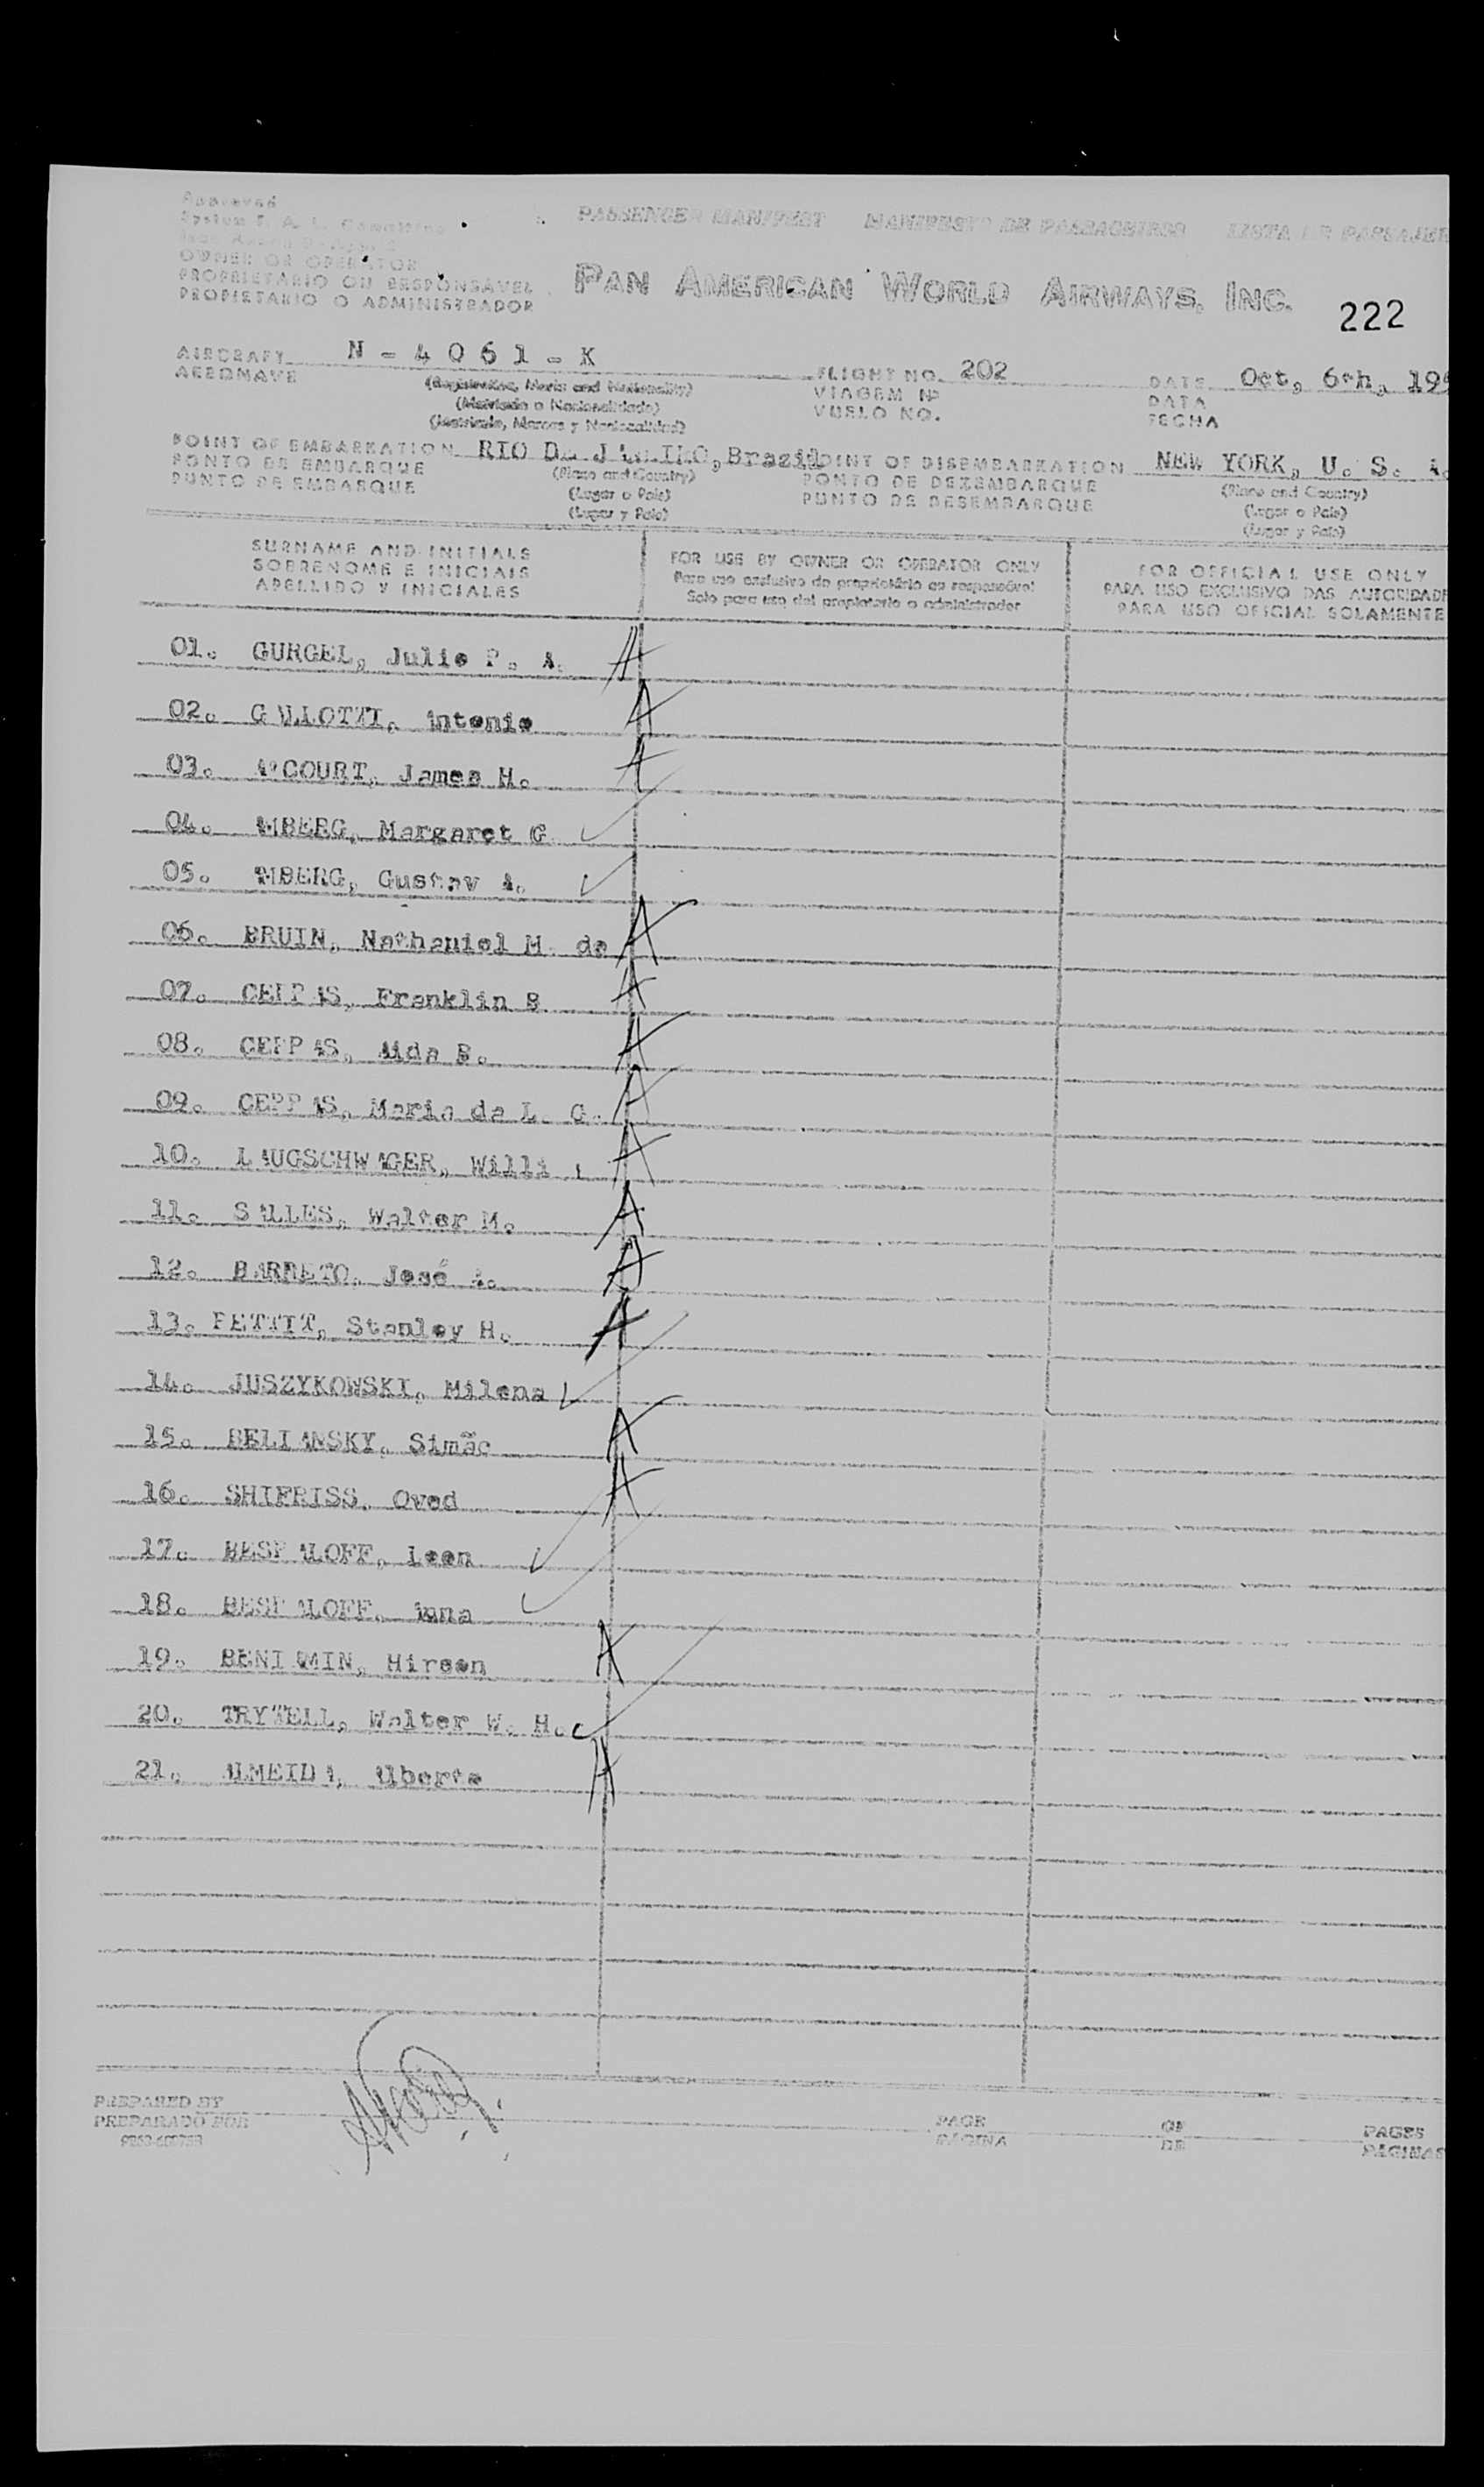 Approved
PASSENGER MANIFEST MANIFESTO DE PASSAGEIROS LISTA DE PASAJER
OWNER OR OPERATOR
PROPRIETARIO OU RESPONSAVEL
PROPIETARIO O ADMINISTRADOR
PAN AMERICAN WORLD AIRWAYS, INC.
222
AIRCRAFT N - 4 0 6 1 - K
AERONAVE
(Registration, Marks and Nationality)
(Matricula o Nacionalidade)
(Matricula, Marcas y Nacionalidad)
FLIGHT NO. 202
VIAGEM Nº
VUELO NO.
DATE Oct, 6th, 19
DATA
FECHA
POINT OF EMBARKATION RIO DE JANEIRO, Brazil
PONTO DE EMBARQUE
PUNTO DE EMBARQUE
(Place and Country)
(Lugar o Pais)
(Lugar y Pais)
POINT OF DISEMBARKATION NEW YORK, U. S. A.
PONTO DE DEZEMBARQUE
PUNTO DE DESEMBARQUE
(Place and Country)
(Lugar o Pais)
(Lugar y Pais)
SURNAME AND INITIALS
SOBRENOME E INICIAIS
APELLIDO Y INICIALES
FOR USE BY OWNER OR OPERATOR ONLY
Para uso exclusivo do proprietário ou responsável
Solo para uso del propietario o administrador
FOR OFFICIAL USE ONLY
PARA USO EXCLUSIVO DAS AUTORIDADE
PARA USO OFICIAL SOLAMENTE
01. GURGEL, Julio P. A. A
02. GALLOTTI, Antonio A
03. A'COURT, James H. A
04. AMBERG, Margaret G ✓
05. AMBERG, Gustav A. ✓
06. BRUIN, Nathaniel M. de A
07. CEPPAS, Franklin S. A
08. CEPPAS, Aida S. A
09. CEPPAS, Maria da L. C. A
10. LAUGSCHWAGER, Willi A
11. SALLES, Walter M. A
12. BARRETO, José A. A
13. PETTIT, Stanley H. A
14. JUSZYKOWSKI, Milena ✓
15. BELIANSKY, Simão A
16. SHIFRISS, Oved A
17. BESPALOFF, Leon ✓
18. BESPALOFF, Anna ✓
19. BENIAMIN, Hirson A
20. TRYTELL, Walter W. H. ✓
21. ALMEIDA, Alberto A
PREPARED BY
PREPARADO POR
PAGE OF PAGES
PAGINA DE PAGINAS